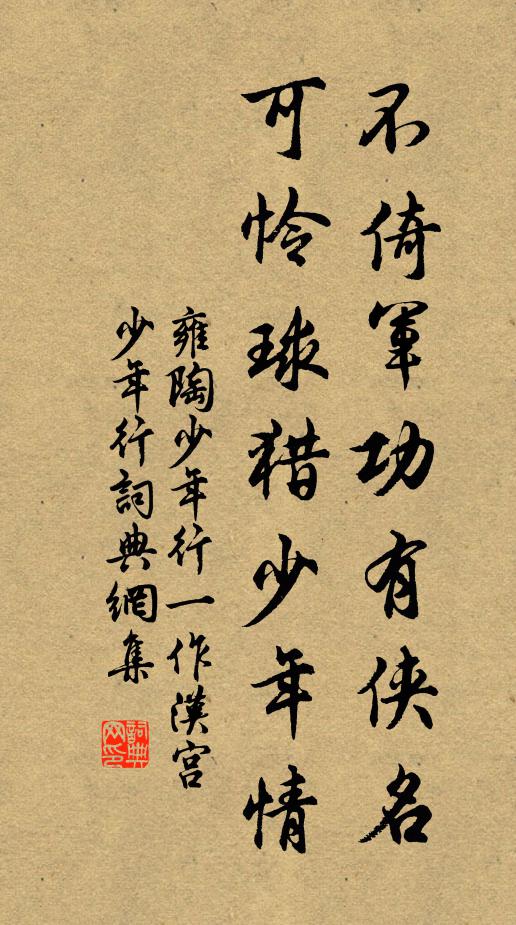 不倚軍功有俠名
可怜球猎少年情
雍陶少年行一作漢宮
少年行詞典網集
詞典
网印